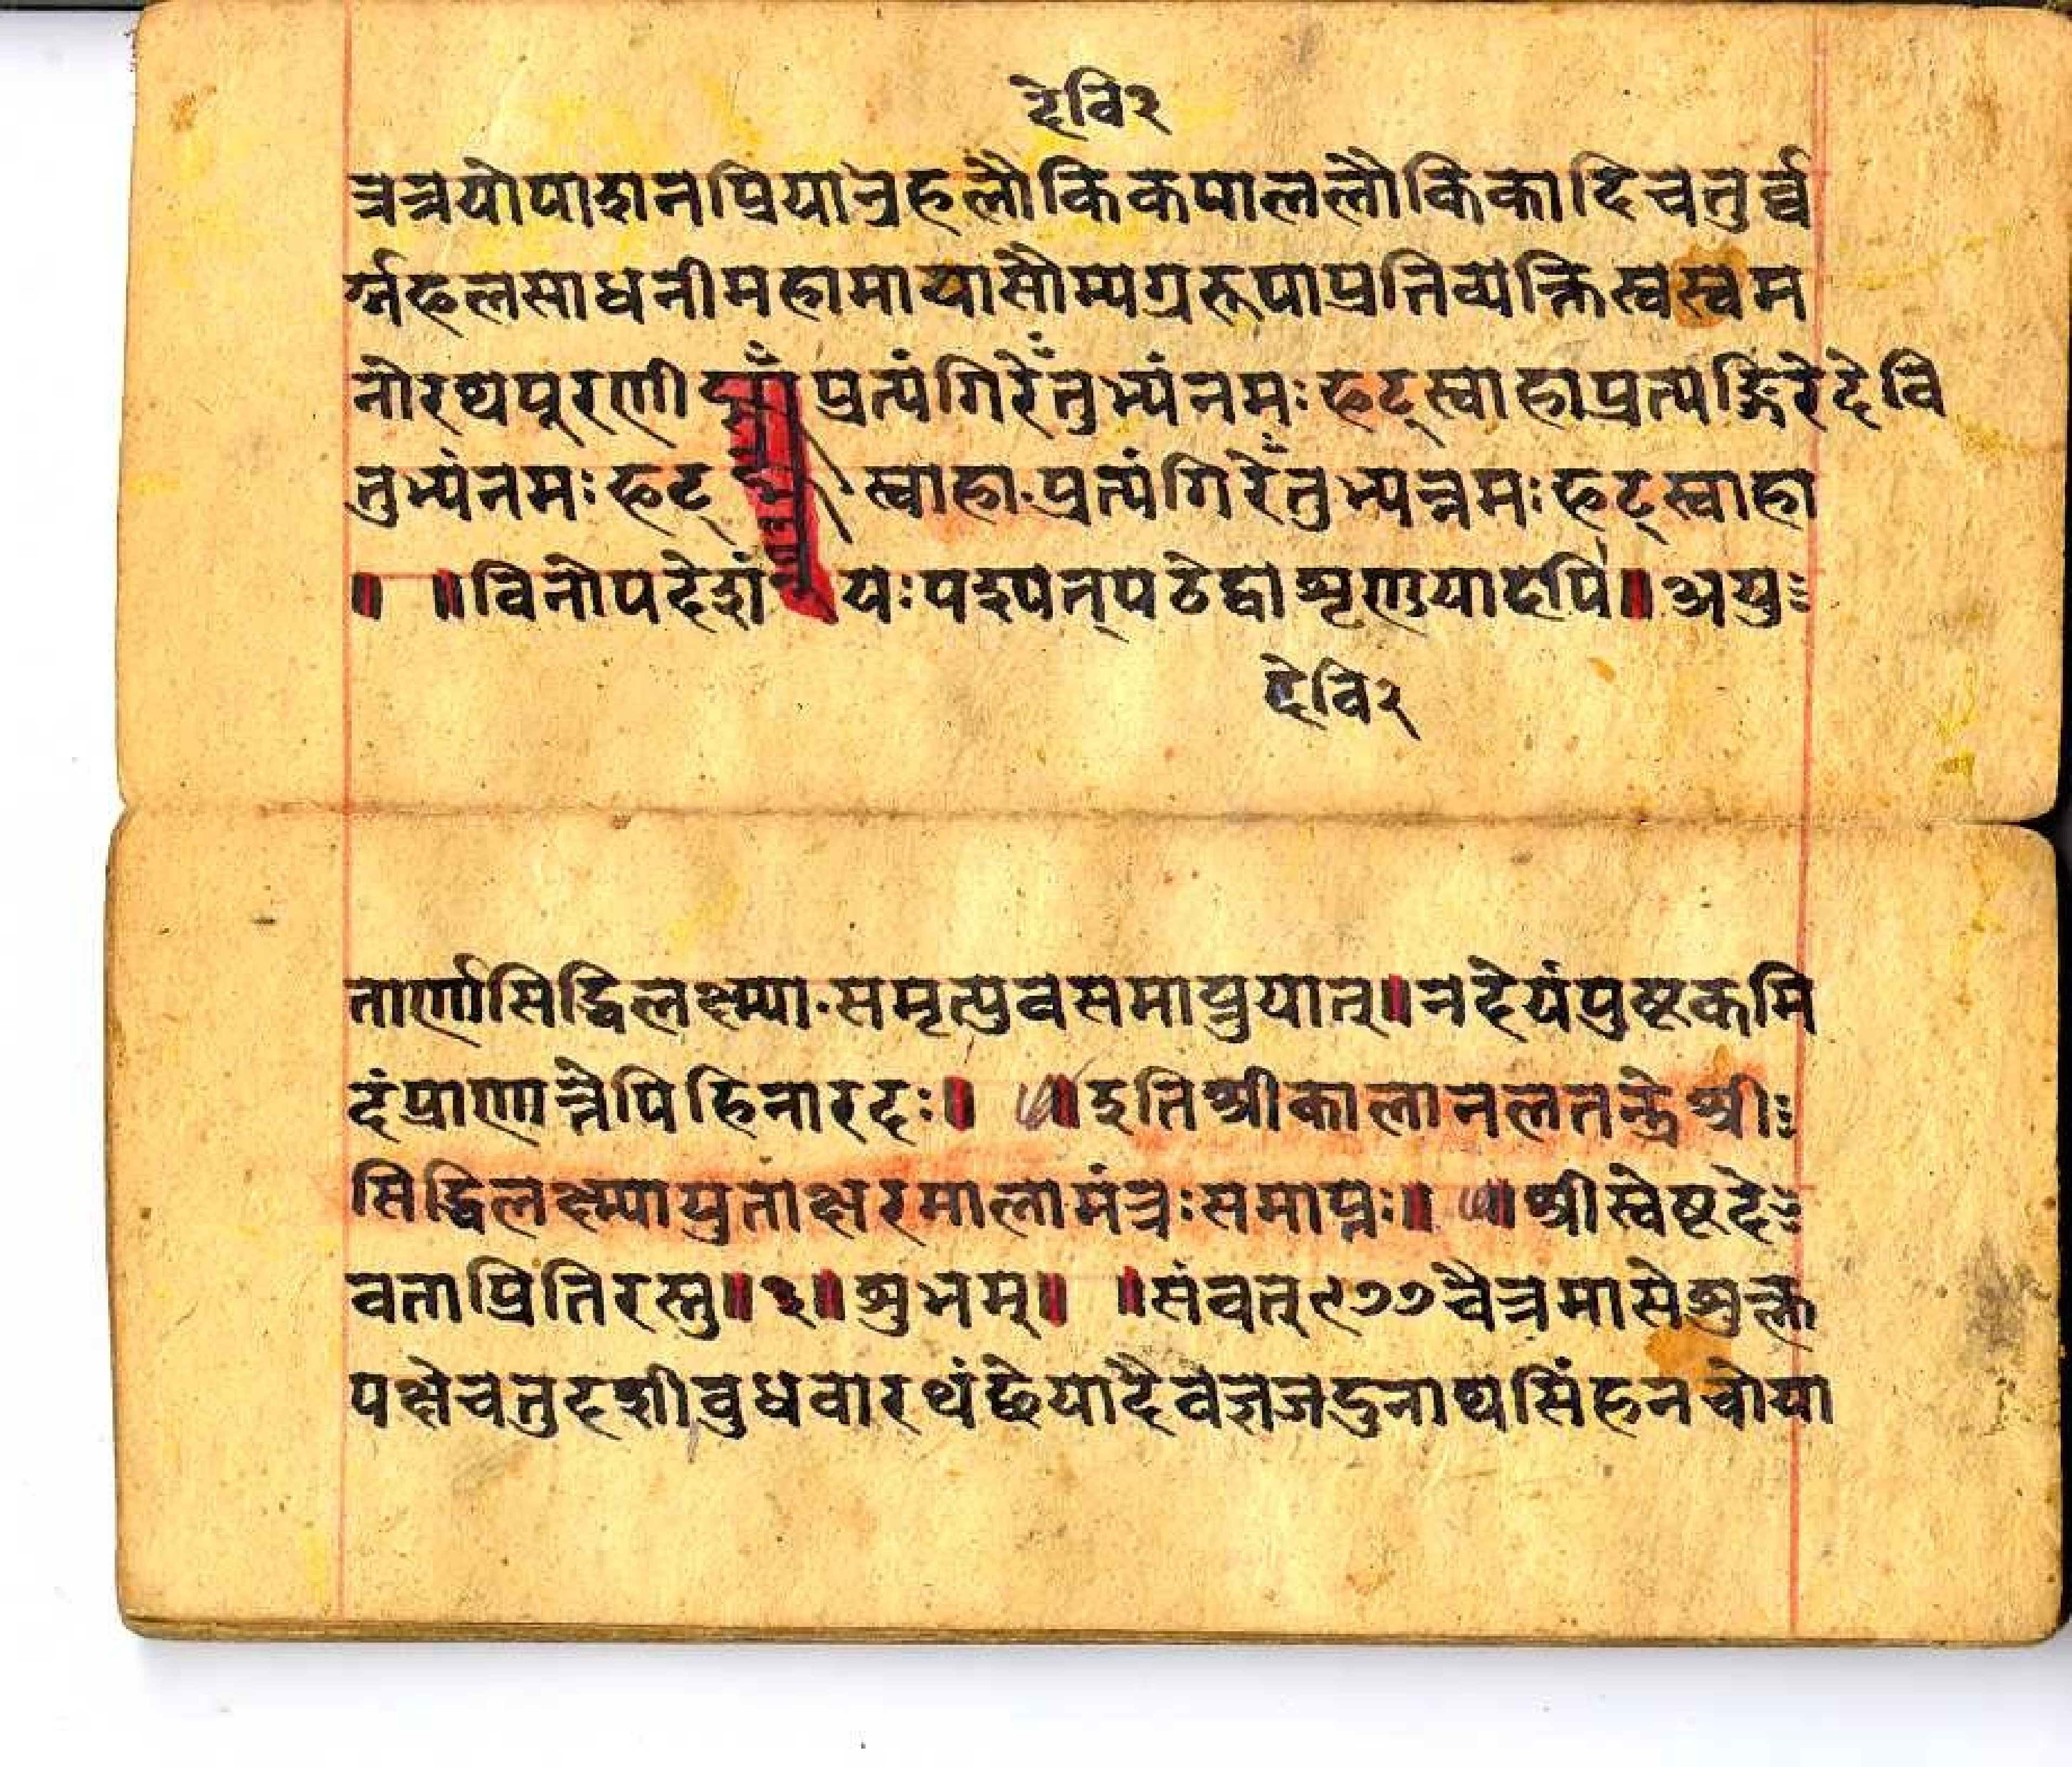 देवि२
त्रत्रयोपाशनप्रियानुहलौकिकपाललौकिकादिचतुर्व्व
र्ग्गफलसाधनीमहामायासौम्यग्ररूपाप्रतिव्यक्तिस्वस्वम
नोरथपूरणी प्रत्यंगिरेँतुभ्यंनमःफट्स्वाहाप्रत्यङ्गिरेदेवि
तुभ्यंनमःफट् स्वाहा॰प्रत्यंगिरेँतुभ्यन्नमःफट्स्वाहा
॥ ॥विनौपदेशं यःपश्यन्पठेद्वाशृणुयादपि॥अयु
देवि२
तार्णासिद्धिलक्ष्म्या॰समृत्युवसमाप्नुयात्॥नदेयंपुष्टकमि
दंप्राणान्त्रैपिहिनारदः॥ ॥इतिश्रीकालानलतन्त्रेश्री
सिद्धिलक्ष्म्यायुताक्षरमालामंत्रःसमाप्तः॥ ॥श्रीस्वेष्टदे
वताप्रितिरस्तु॥३॥शुभम्॥ ॥संवत्९७७चैत्रमासेशुक्ल
पक्षेचतुर्दशीबुधवारथंछेयादैवज्ञजदुनाथसिंहनचोया